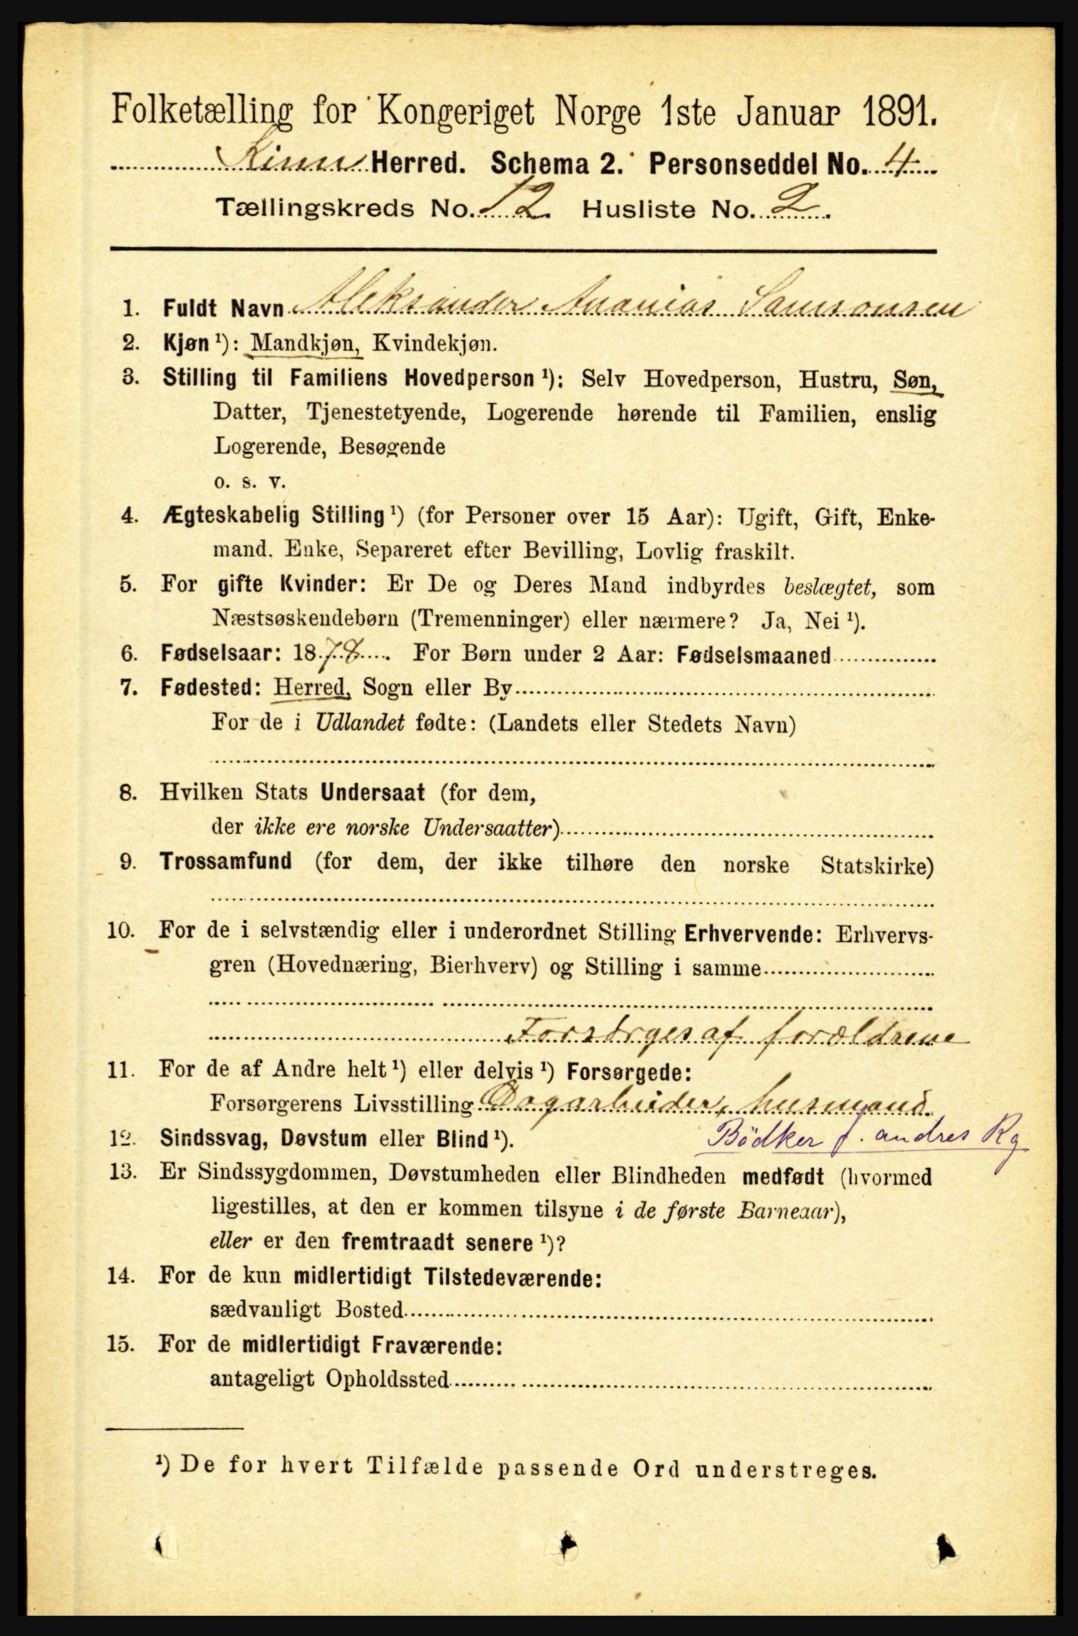 Folketælling for Kongeriget Norge 1ste Januar 1891.
Kinn Herred. Schema 2. Personseddel No. 4
Tællingskreds No. 12 Husliste No. 2
1. Fuldt Navn Aleksander Ananias Samsonsen
2. Kjøn ¹): Mandkjøn, Kvindekjøn.
3. Stilling til Familiens Hovedperson ¹): Selv Hovedperson, Hustru, Søn,
Datter, Tjenestetyende, Logerende hørende til Familien, enslig
Logerende, Besøgende
o. s. v.
4. Ægteskabelig Stilling ¹) (for Personer over 15 Aar): Ugift, Gift, Enke-
mand, Enke, Separeret efter Bevilling, Lovlig fraskilt.
5. For gifte Kvinder: Er De og Deres Mand indbyrdes beslægtet, som
Næstsøskendebørn (Tremenninger) eller nærmere? Ja, Nei ¹).
6. Fødselsaar: 1878. For Børn under 2 Aar: Fødselsmaaned
7. Fødested: Herred, Sogn eller By
For de i Udlandet fødte: (Landets eller Stedets Navn)
8. Hvilken Stats Undersaat (for dem,
der ikke ere norske Undersaatter)
9. Trossamfund (for dem, der ikke tilhøre den norske Statskirke)
10. For de i selvstændig eller i underordnet Stilling Erhvervende: Erhvervs-
gren (Hovednæring, Bierhverv) og Stilling i samme
Forsørges af forældrene
11. For de af Andre helt ¹) eller delvis ¹) Forsørgede:
Forsørgerens Livsstilling Dagarbeider, husmand.
12. Sindssvag, Døvstum eller Blind ¹). Bödker f. andres Rg
13. Er Sindssygdommen, Døvstumheden eller Blindheden medfødt (hvormed
ligestilles, at den er kommen tilsyne i de første Barneaar),
eller er den fremtraadt senere ¹)?
14. For de kun midlertidigt Tilstedeværende:
sædvanligt Bosted
15. For de midlertidigt Fraværende:
antageligt Opholdssted
¹) De for hvert Tilfælde passende Ord understreges.